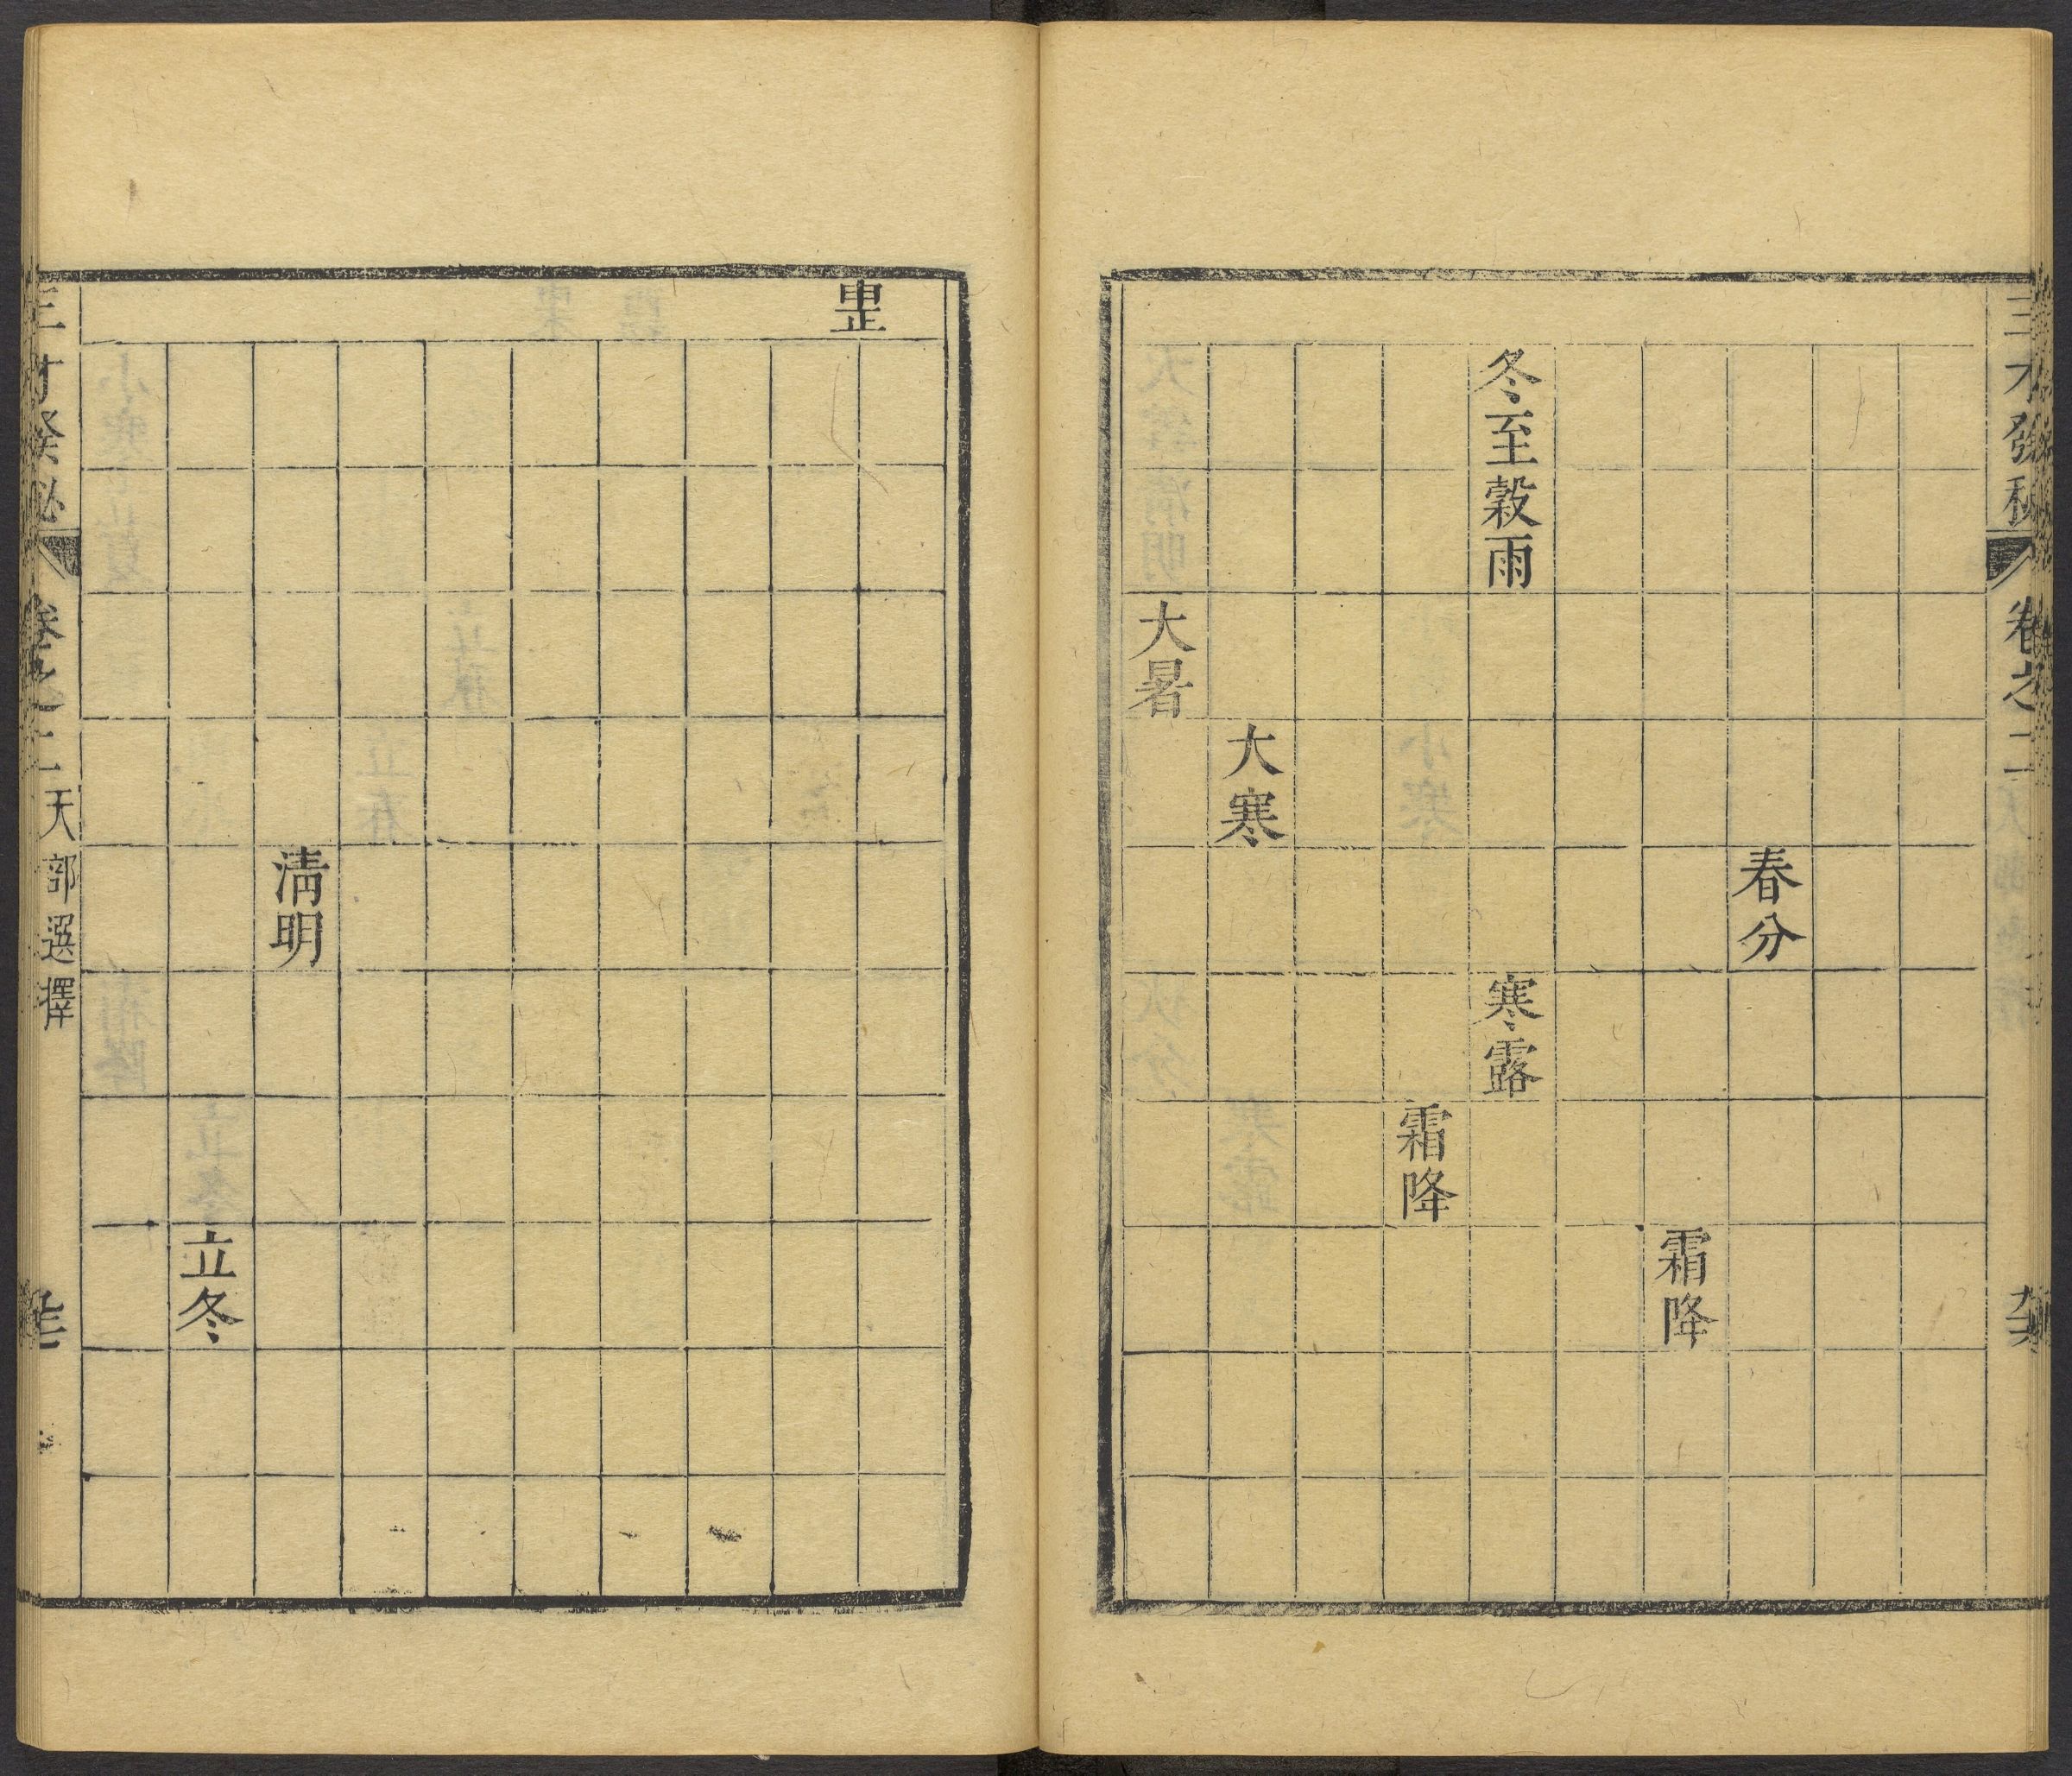 三才發秘
卷之二
春分
霜降
冬至穀雨
寒露
霜降
大寒
大暑
清明
立冬
三才發秘
卷之二
天部選擇